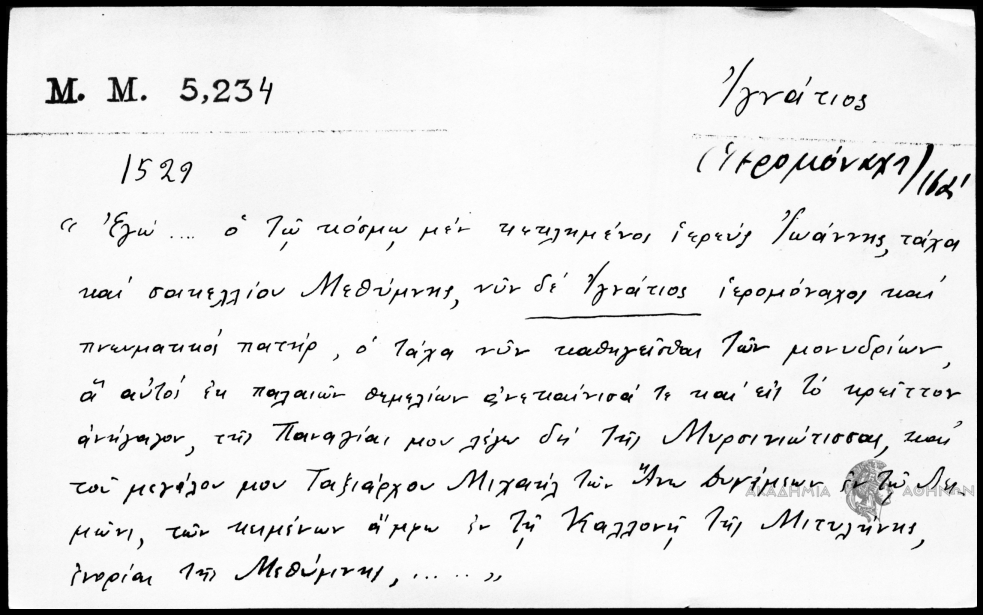 M. M. 5,234
Ἰγνάτιος
1529
(ἱερομόναχ
“ Ἐγώ ... ὁ τῷ κόσμῳ μέν κεκλημένος ἱερεύς Ἰωάννης, τάχα
καί σακελλίου Μεθύμνης, νῦν δέ Ἰγνάτιος ἱερομόναχος καί
πνευματικός πατήρ, ὁ τάχα νῦν καθηγεῖσθαι τῶν μονυδρίων,
ἅ αὐτός ἐκ παλαιῶν θεμελίων ἀνεκαίνισά τε καί εἰς τό κρεῖττον
ἀνήγαγον, τῆς Παναγίας μου λέγω δή τῆς Μυρσινιώτισσας, καί
τοῦ μεγάλου μου Ταξιάρχου Μιχαήλ τῶν Ἄνω δυνάμεων ἐν τῷ Λει-
μῶνι, τῶν κημένων ἄμφω ἐν τῇ Καλλονῇ τῆς Μιτυλήνης,
ἐνορίας τῆς Μεθύμνης, ..... ”
ΑΚΑΔΗΜΙΑ ΑΘΗΝΩΝ